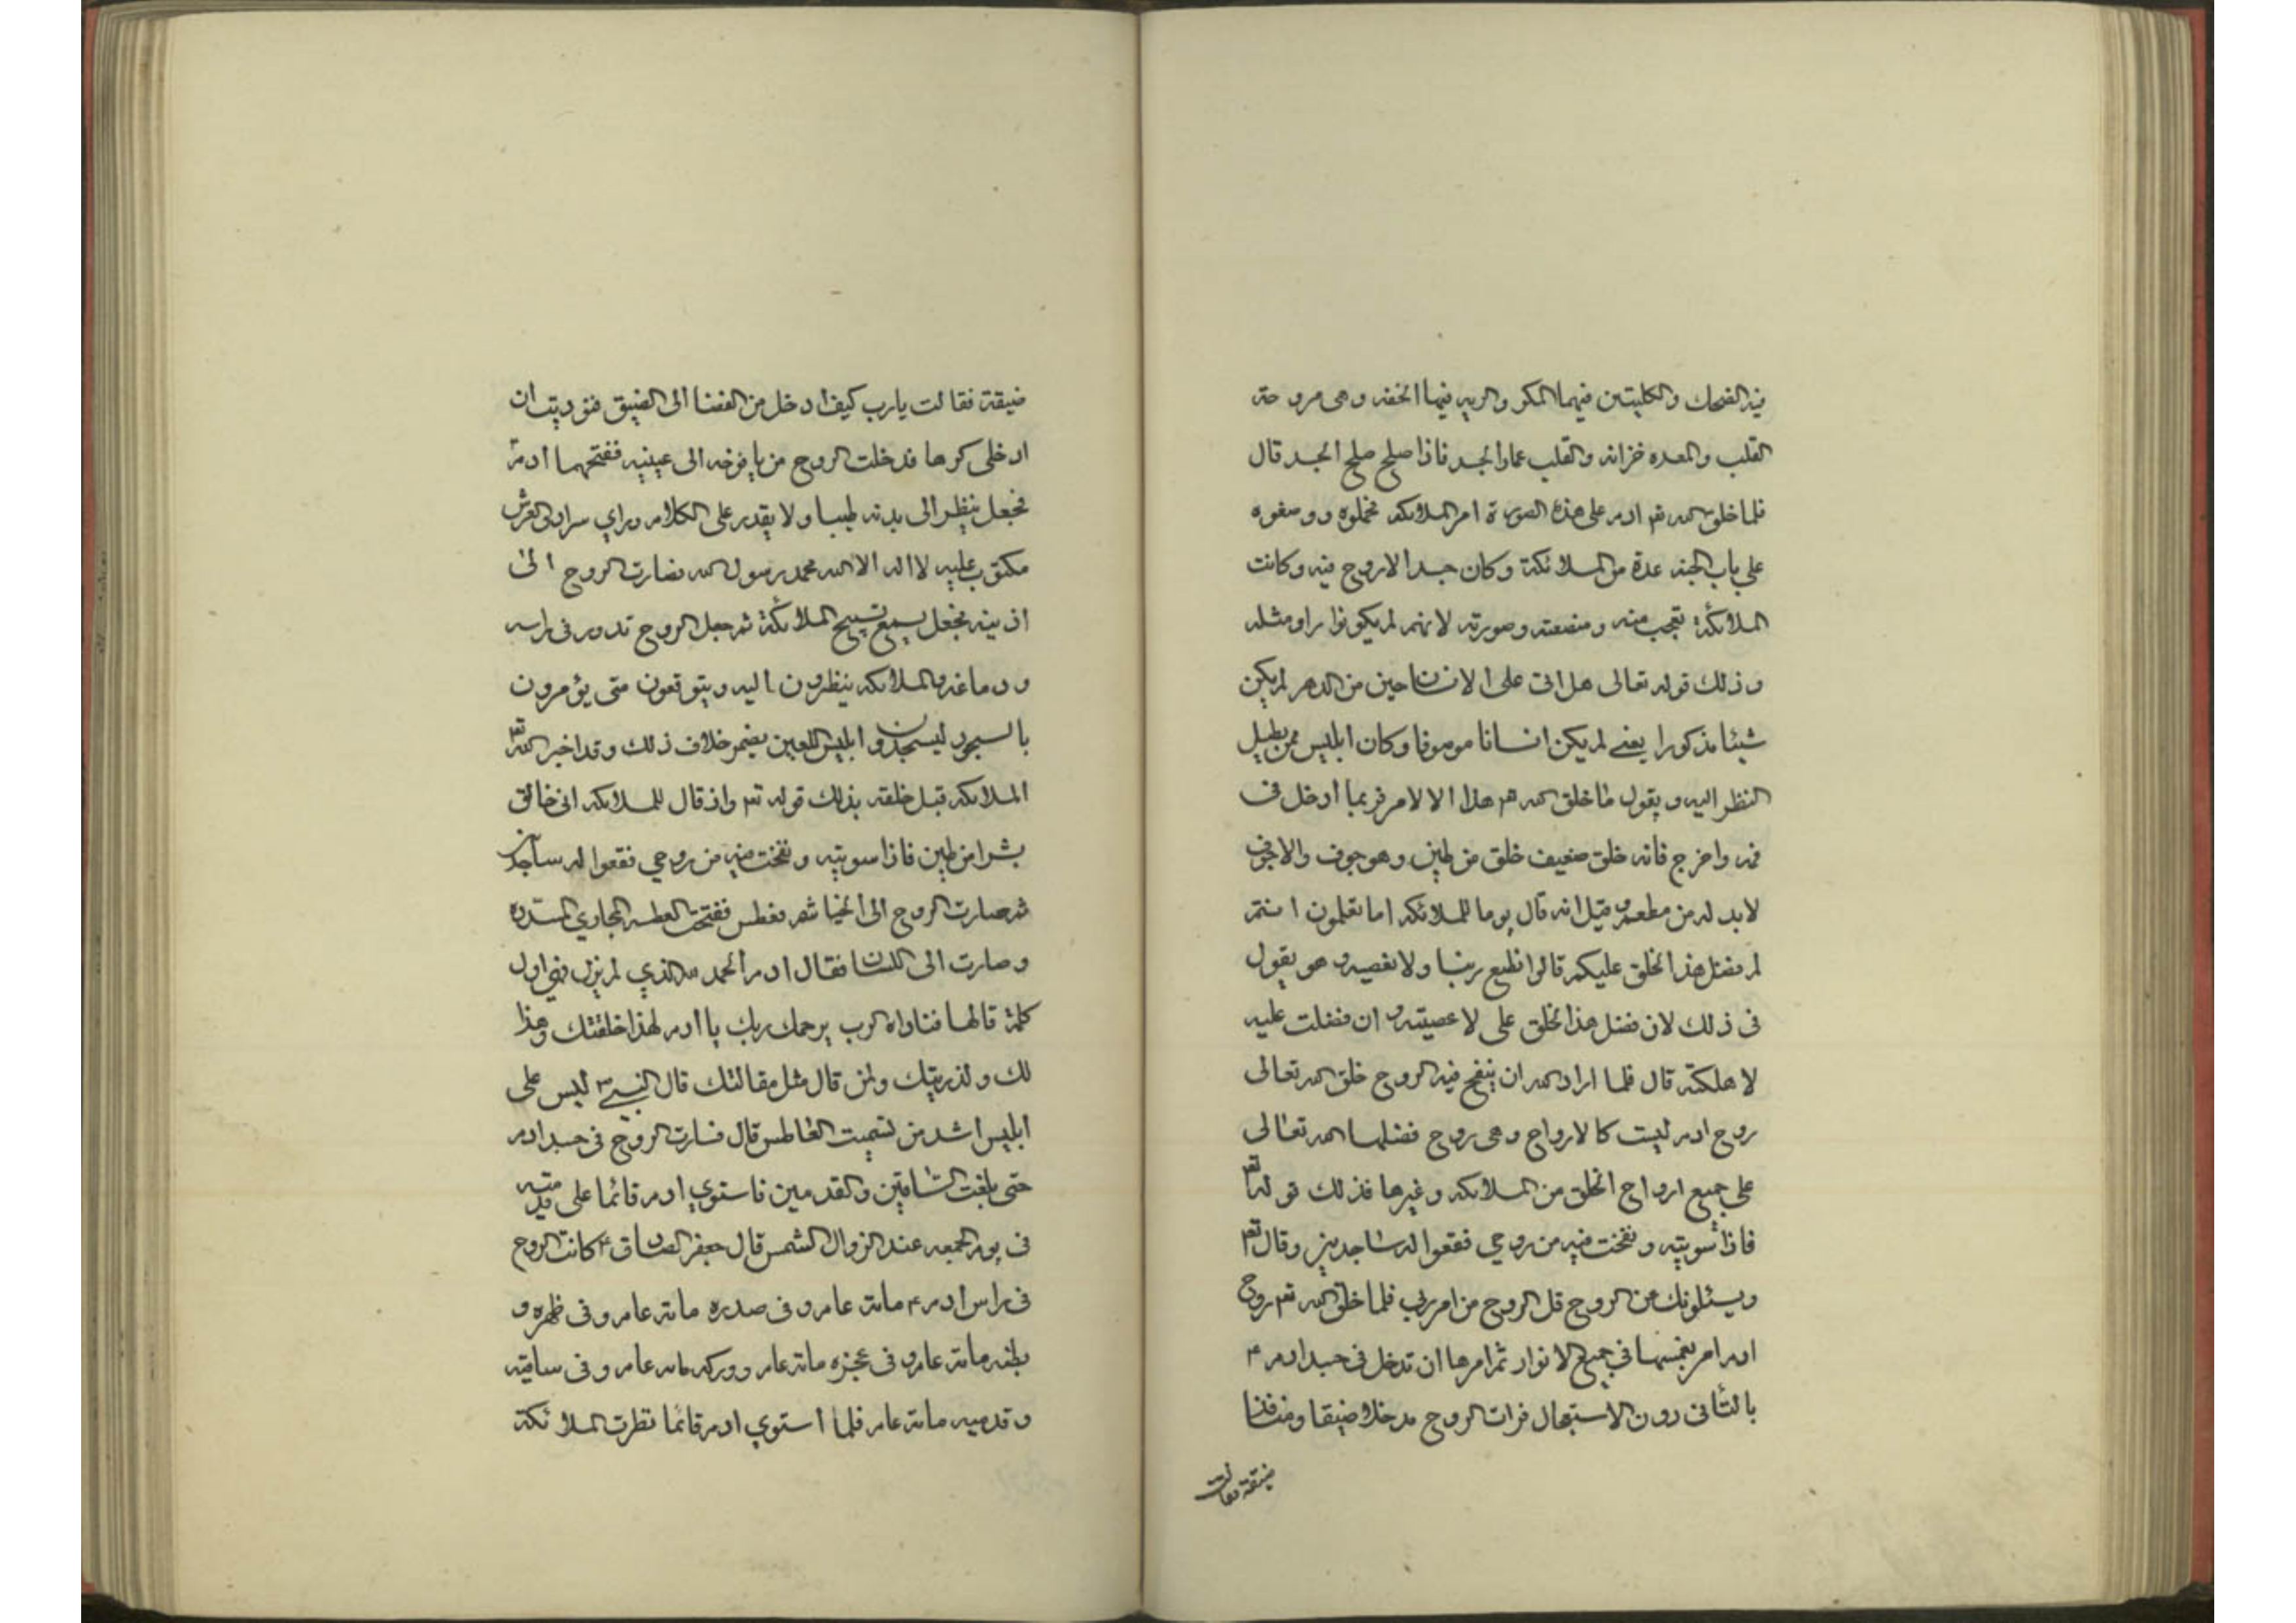 فيه الضحك والكليتين فيهما المكر والريه فيها الخفه وهى مروحة
القلب والمعده خزانه والقلب عماد الجسد فاذا صلح صلح الجسد قال
فلما خلق الله تع ادم على هذه الصورة امر الملائكه فحملوه ووضعوه
على باب الجنه عدة من الملائكة وكان جسدا لاروح فيه وكانت
الملائكة تعجب منه ومنصعته وصورته لانهم لم يكونوا راو مثله
وذلك قوله تعالى هل اتى على الانسان حين من الدهر لم يكن
شيئا مذكورا يعنى لم يكن انسانا موصوفا وكان ابليس ممن يطيل
النظر اليه ويقول ما خلق الله هذا الا لامر فربما أدخل فى
فيه واخرج فانه خلق ضعيف خلق من طين وهو جوف والاجوف
لابد له من مطعم وقيل انه قال يوما للملائكه اما تعلمون
لم فضل هذا الخلق عليكم قالوا نطيع ربنا ولا نعصيه وهو يقول
فى ذلك لان فضل هذا الخلق على لاعصيته وان فضلت عليه
لاهلكته قال فلما اراد الله ان ينفخ فيه الروح خلق الله تعالى
روح ادم ليست كالارواح وهى روح فضلها الله تعالى
على جميع ارواح الخلق من الملائكه وغيرها فذلك قوله تع
فاذا سويته ونفخت فيه من روحي فقعوا له ساجدين وقال تع
ويسئلونك عن الروح قل الروح من امر ربى فلما خلق الله تع روح
ادم امر بغمسها في جميع الانوار ثم امرها ان تدخل فى جسد ادم ع
بالتأنى دون الاستعجال فرات الروح مدخلا ضيقا ومنافذا
ضيقة فقالت
ضيقة فقالت يارب كيف ادخل من الفضا الى الضيق فنوديت ان
ادخلى كرها فدخلت الروح من يافوخه الى عينيه ففتحهما ادم
فجعل ينظر الى بدنه طينا ولا يقدر على الكلام وراي سرادق العرش
مكتوب عليه لااله الا الله محمد رسول الله فصارت الروح الى
اذنيه فجعل يسمع تسبيح الملائكة ثم جعل الروح تدور فى راسه
ودماغه والملائكه ينظرون اليه ويتوقعون متى يؤمرون
بالسجود ليسجدون وابليس اللعين يضمر خلاف ذلك وقد اخبر الله تع
الملائكه قبل خلقته بذلك قوله تع واذ قال للملائكه انى خالق
بشرا من طين فاذا سويته ونفخت فيه من روحي فقعوا له ساجدين
ثم صارت الروح الى الخياشم فعطس ففتحت العطسه المجاري المسدده
وصارت الى اللسان فقال ادم الحمد لله الذي لم يزل فهى اول
كلمة قالها فناداه الرب يرحمك ربك ياادم لهذا خلقتك وهذا
لك ولذريتك ولمن قال مثل مقالتك قال النبى ليس على
ابليس اشد من تسميت العاطس قال فسارت الروح فى جسد ادم
حتى بلغت الساقين والقدمين فاستوي ادم قائما على قدميه
فى يوم الجمعه عند الزوال الشمس قال جعفر الصادق ع كانت الروح
فى راس ادم ع مائة عام وفى صدره مائة عام وفى ظهره و
بطنه مائة عام وفى عجزه مائة عام ووركه مائه عام وفى ساقيه
وقدميه مائة عام فلما استوي ادم قائما نظرت الملائكة